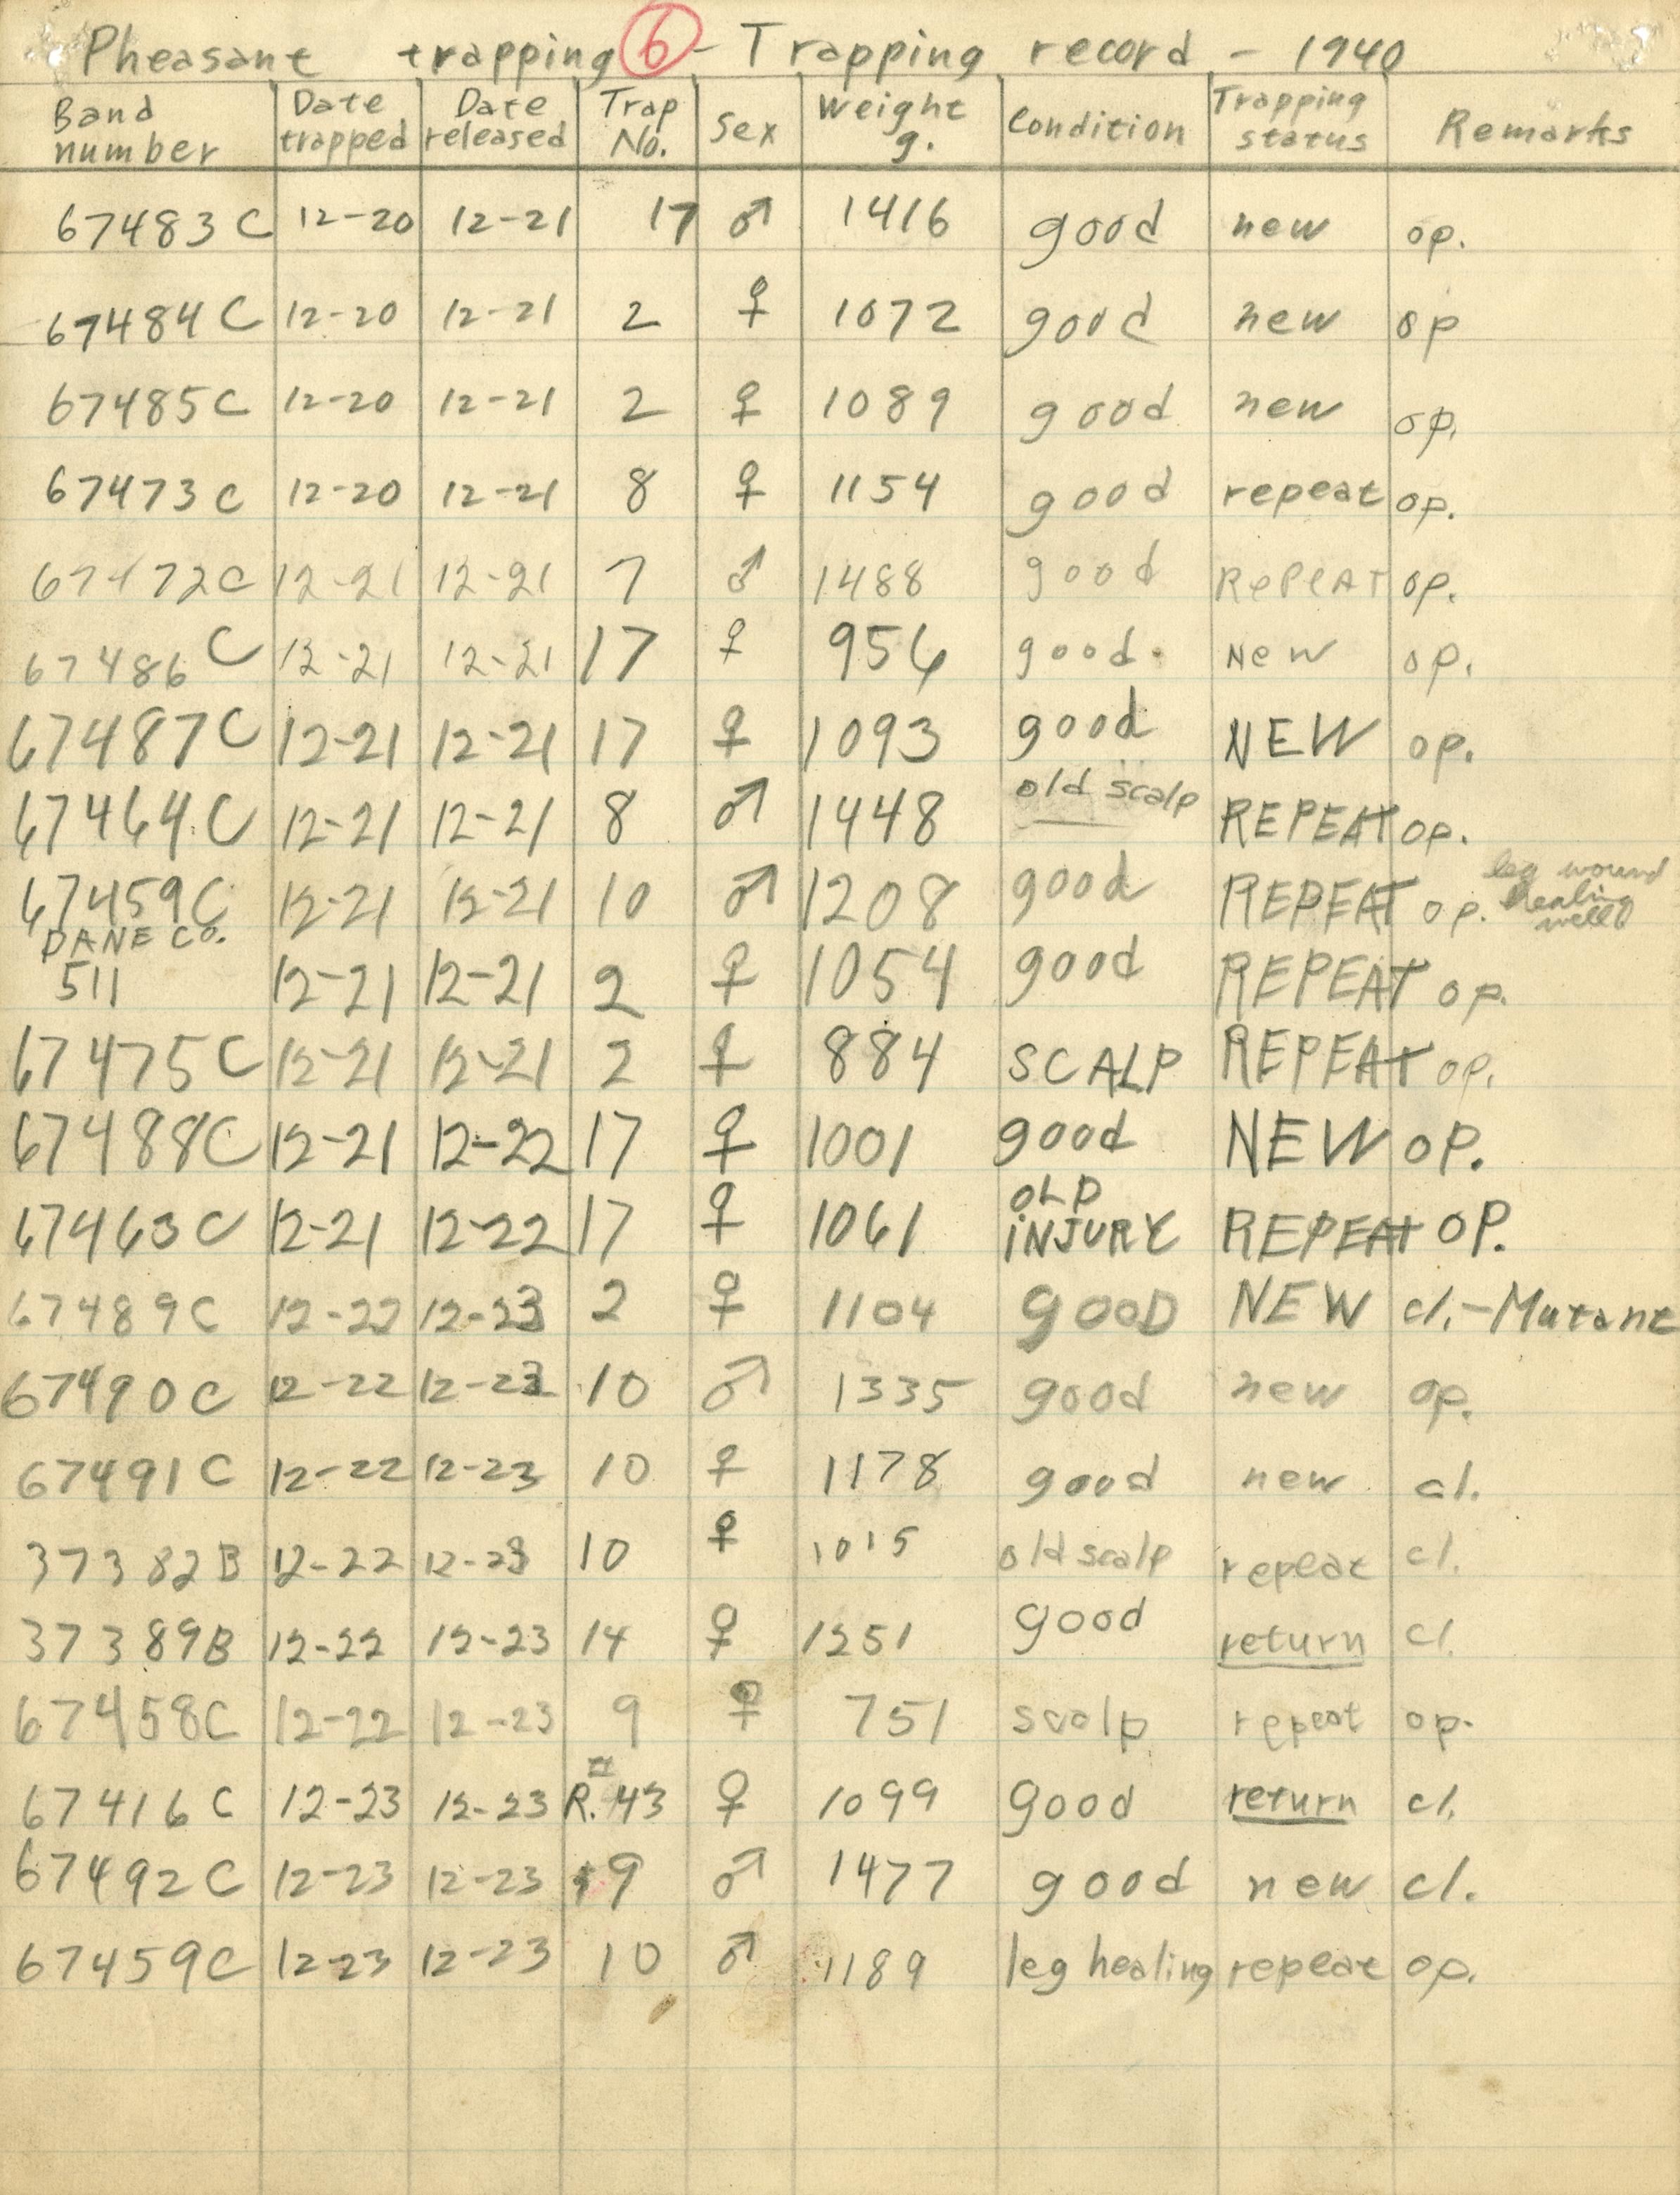 Pheasant trapping 6 - Trapping record - 1940
Band number | Date trapped | Date released | Trap No. | Sex | Weight g. | Condition | Trapping status | Remarks
67483 C 12-20 12-21 17 ♂ 1416 good new op.
67484 C 12-20 12-21 2 ♀ 1072 good new op
67485 C 12-20 12-21 2 ♀ 1089 good new op.
67473 C 12-20 12-21 8 ♀ 1154 good repeat op.
67472C 12-21 12-21 7 ♂ 1488 good RePeAT op.
67486 C 12-21 12-21 17 ♀ 956 good. New op.
67487C 12-21 12-21 17 ♀ 1093 good NEW op.
67464.C 12-21 12-21 8 ♂ 1448 old scalp REPEAT op.
67459C 12-21 12-21 10 ♂ 1208 good REPEAT op. leg wound healing well
DANE CO.
511 12-21 12-21 2 ♀ 1054 good REPEAT op.
67475C 12-21 12-21 2 ♀ 884 SCALP REPEAT op.
67488C 12-21 12-22 17 ♀ 1001 good NEW OP.
67463C 12-21 12-22 17 ♀ 1061 OLD INJURY REPEAT OP.
67489C 12-22 12-23 2 ♀ 1104 gooD NEW cl.-Mutant
67490C 12-22 12-23 10 ♂ 1335 good new op.
67491C 12-22 12-23 10 ♀ 1178 good new cl.
37382B 12-22 12-23 10 ♀ 1015 old scalp repeat cl.
37389B 12-22 12-23 14 ♀ 1251 good return cl.
67458C 12-22 12-23 9 ♀ 751 scalp repeat op.
67416 C 12-23 12-23 R. # 43 ♀ 1099 good return cl.
67492C 12-23 12-23 9 ♂ 1477 good new cl.
67459C 12-23 12-23 10 ♂ 1189 leg healing repeat op.